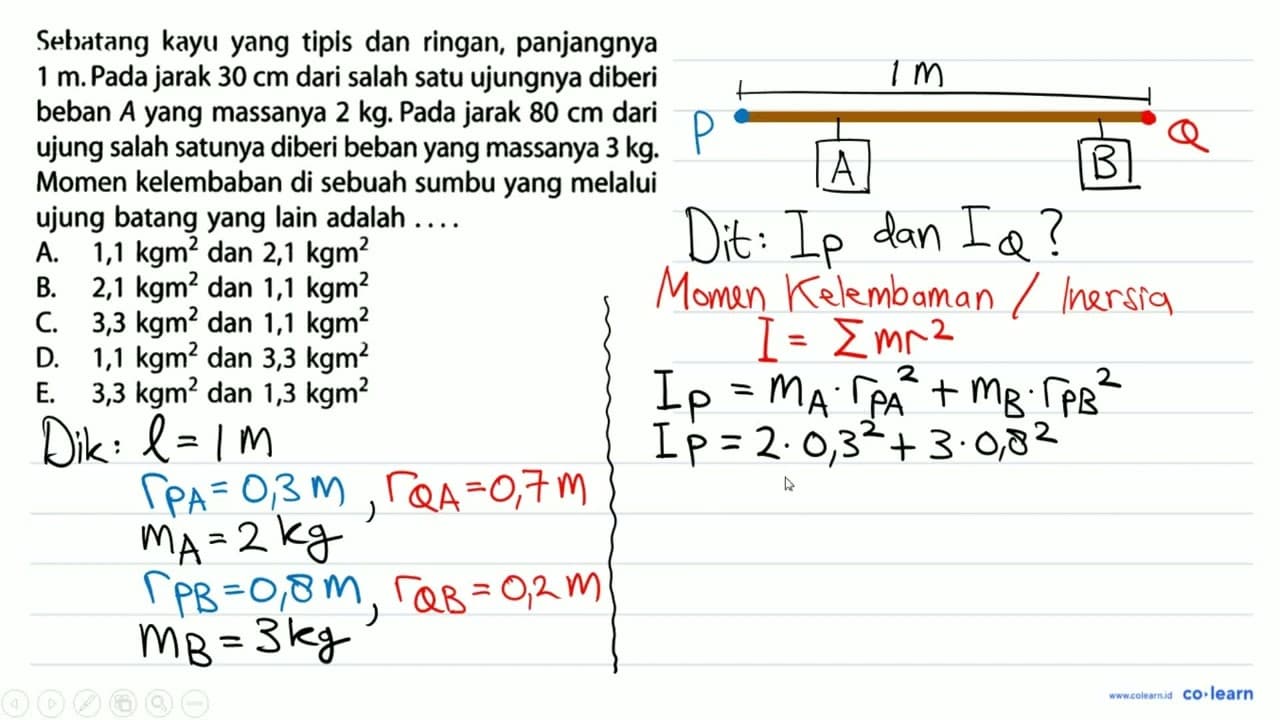 Sebatang kayu yang tipis dan ringan, panjangnya
1 m. Pada jarak 30 cm dari salah satu ujungnya diberi
beban A yang massanya 2 kg. Pada jarak 80 cm dari
ujung salah satunya diberi beban yang massanya 3 kg.
Momen kelembaban di sebuah sumbu yang melalui
ujung batang yang lain adalah . . . .
A. 1,1 kgm² dan 2,1 kgm²
B. 2,1 kgm² dan 1,1 kgm²
C. 3,3 kgm² dan 1,1 kgm²
D. 1,1 kgm² dan 3,3 kgm²
E. 3,3 kgm² dan 1,3 kgm²
Dik: l = 1 m
r_PA = 0,3 m, r_QA = 0,7 m
m_A = 2 kg
r_PB = 0,8 m, r_QB = 0,2 m
m_B = 3 kg
1 m
P
Q
A
B
Dit: I_P dan I_Q?
Momen Kelembaman / Inersia
I = Σmr²
I_P = m_A · r_PA² + m_B · r_PB²
I_P = 2 · 0,3² + 3 · 0,8²
www.colearn.id co·learn